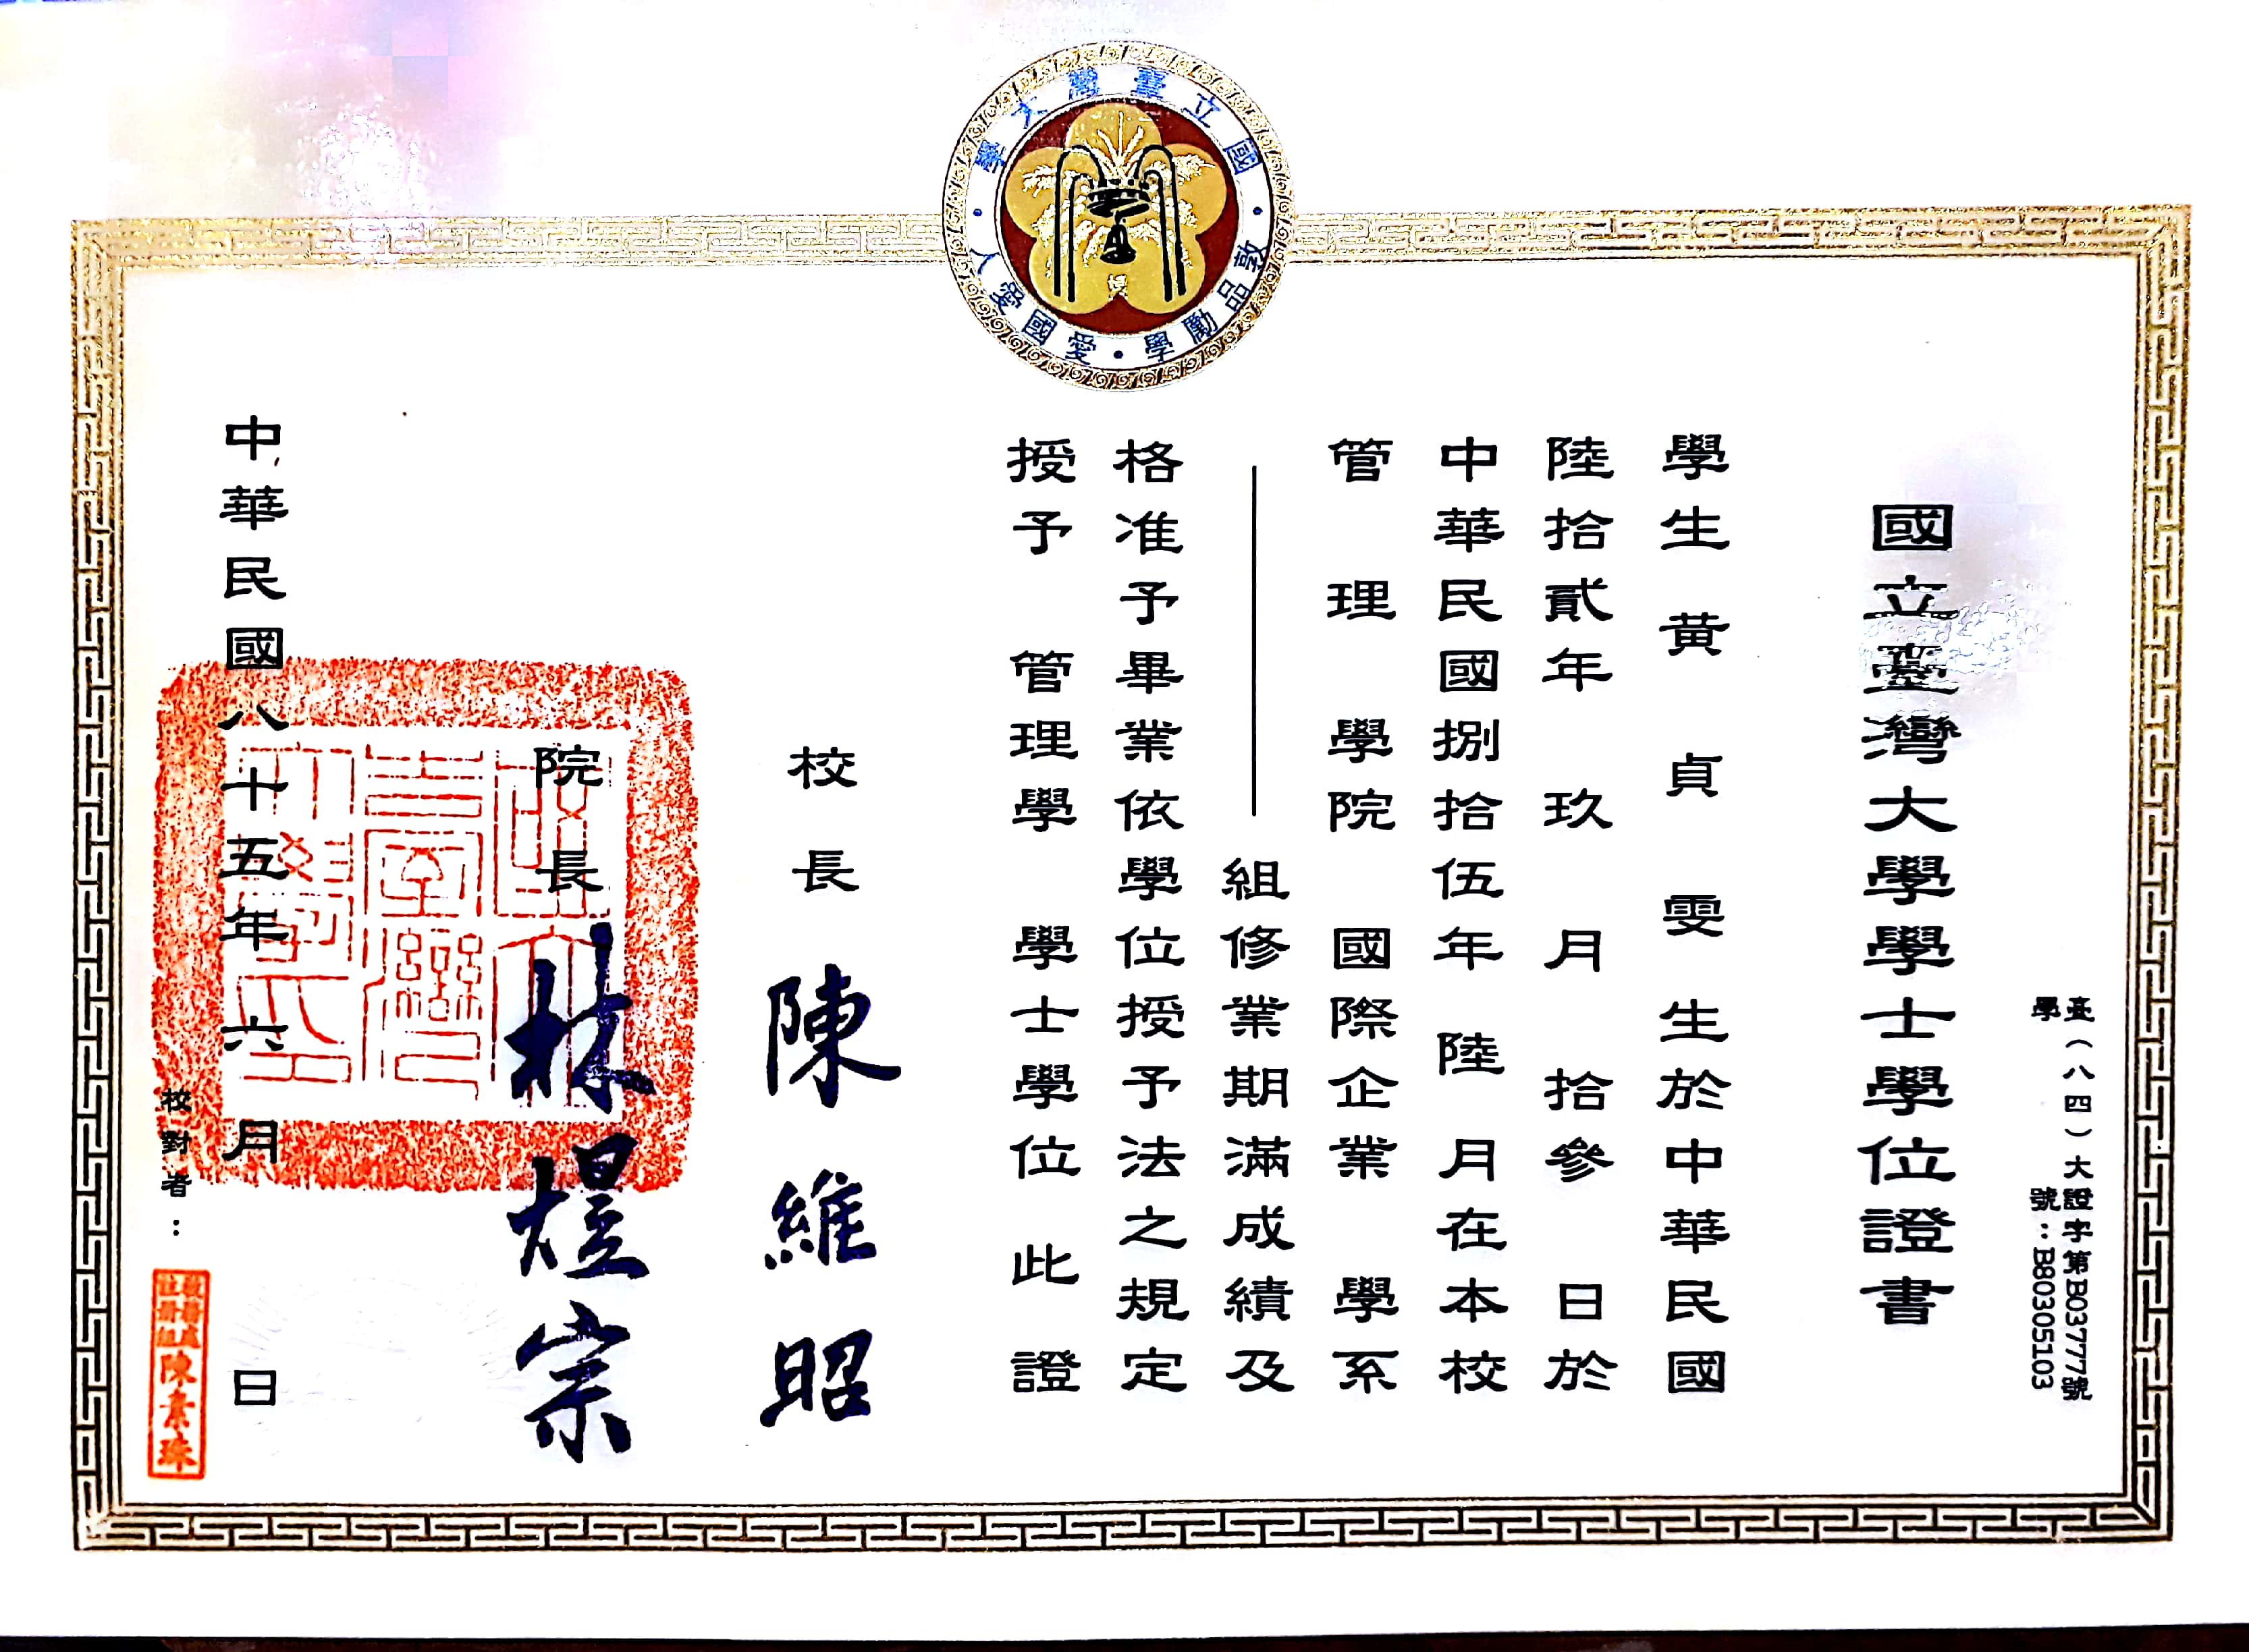 國立臺灣大學
敦品勵學・愛國愛人
臺(八四)大證字第B03777號
學號：B80305103
國立臺灣大學學士學位證書
學生黄貞雯生於中華民國
陸拾貳年玖月拾參日於
中華民國捌拾伍年陸月在本校
管理學院國際企業學系
組修業期滿成績及
格准予畢業依學位授予法之規定
授予管理學學士學位此證
校長陳維昭
院長林煜宗
中華民國八十五年六月日
校對者：
教務處
註冊組
陳素珠
國立
臺灣
大學印